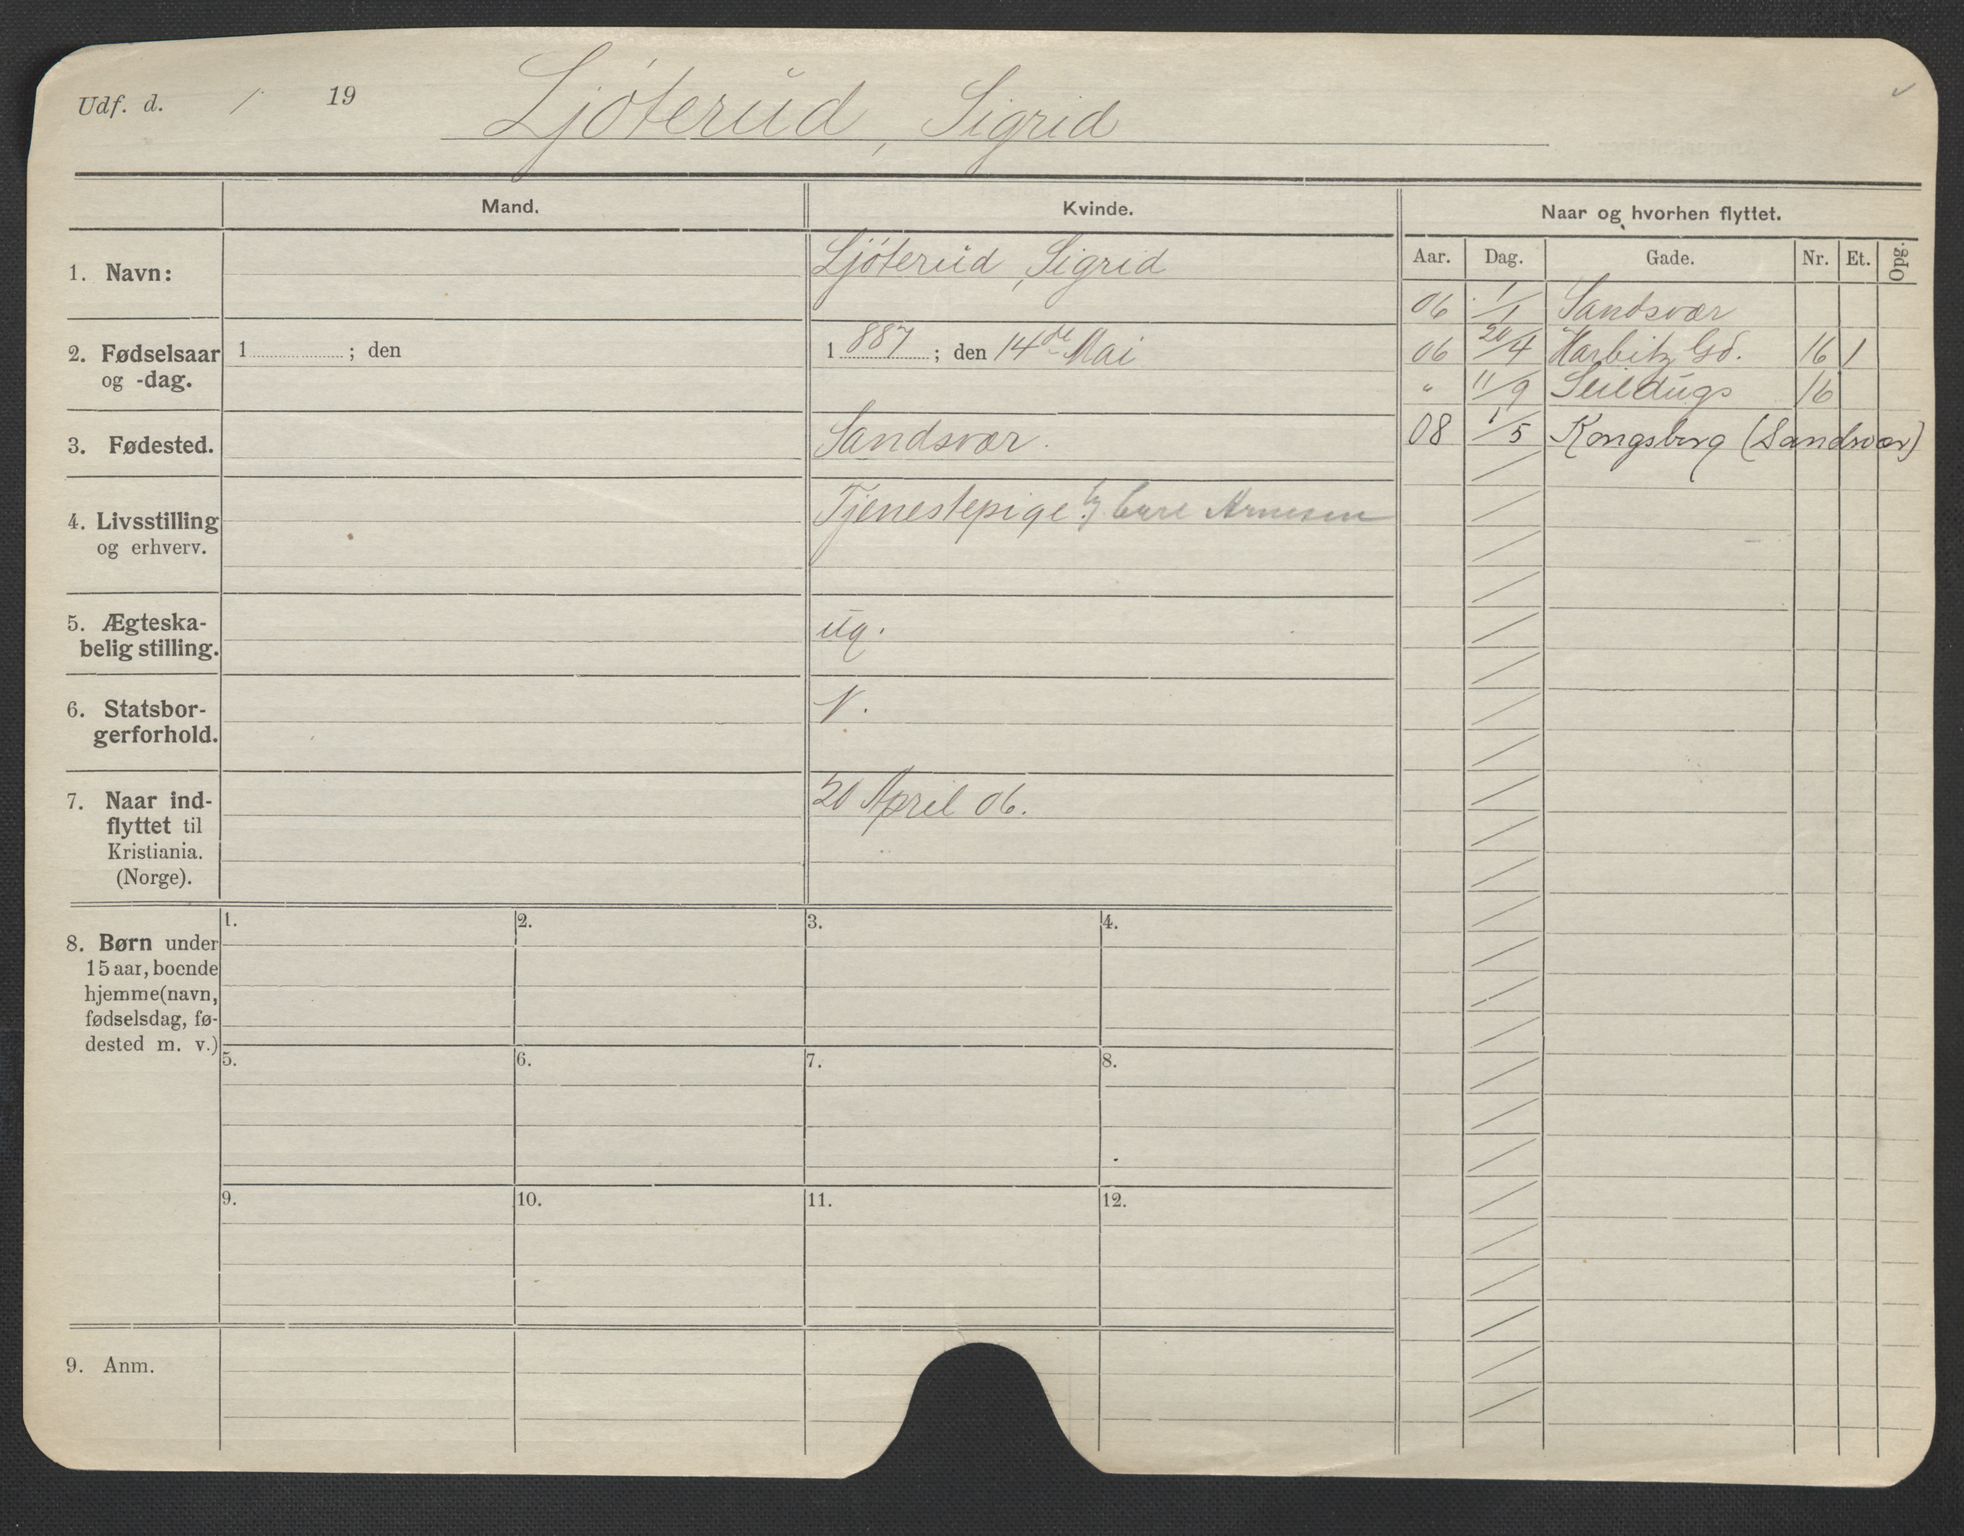 Udf. d. / 19
Ljóterud, Sigrid
Mand.
Kvinde.
Naar og hvorhen flyttet.
Aar. Dag. Gade. Nr. Et. Opg.
1. Navn:
Ljóterud, Sigrid
2. Fødselsaar
og -dag.
1 ; den
1887; den 14de Mai
3. Fødested.
Sandsvær.
4. Livsstilling
og erhverv.
Tjenestepige Arnesen
5. Ægteska-
belig stilling.
ug.
6. Statsbor-
gerforhold.
N.
7. Naar ind-
flyttet til
Kristiania.
(Norge).
20 April 06.
06 1/1 Sandsvær
06 20/4 Harbitz Gd. 16 1
" 11/9 Seildugs 16
08 1/5 Kongsberg (Sandsvær)
8. Børn under
15 aar, boende
hjemme (navn,
fødselsdag, fø-
dested m. v.)
1. 2. 3. 4.
5. 6. 7. 8.
9. 10. 11. 12.
9. Anm.